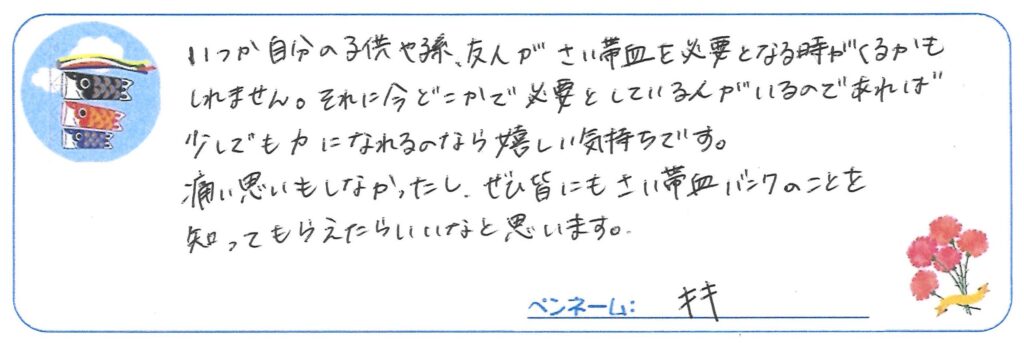 いつか自分の子供や孫、友人がさい帯血を必要となる時がくるかも
しれません。それに今どこかで必要としている人がいるのであれば
少しでも力になれるのなら嬉しい気持ちです。
痛い思いもしなかったし、ぜひ皆にもさい帯血バンクのことを
知ってもらえたらいいなと思います。
ペンネーム: キキ